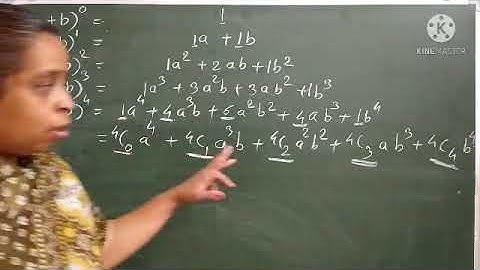 +b)⁰ = 1
b)¹ = 1a + 1b
)² = 1a² + 2ab + 1b²
)³ = 1a³ + 3a²b + 3ab² + 1b³
)⁴ = 1a⁴ + 4a³b + 6a²b² + 4ab³ + 1b⁴
= ⁴C₀ a⁴ + ⁴C₁ a³b + ⁴C₂ a²b² + ⁴C₃ ab³ + ⁴C₄ b⁴
KINEMASTER